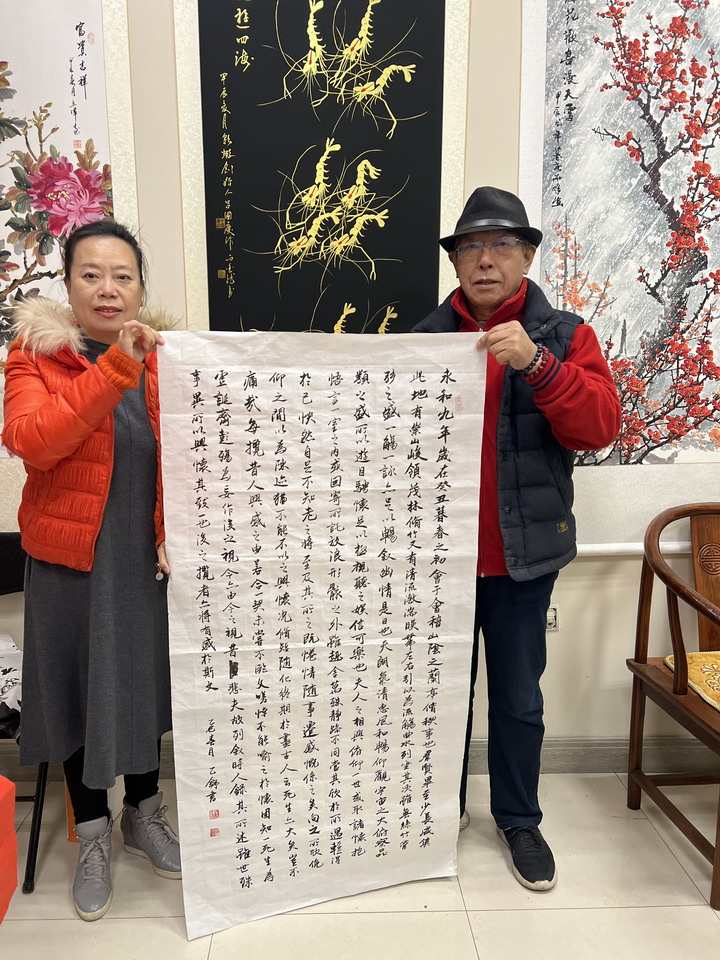 富貴吉祥
遊四海
永和九年歲在癸丑暮春之初會于會稽山陰之蘭亭脩稧事也羣賢畢至少長咸集
此地有崇山峻領茂林脩竹又有清流激湍暎帶左右引以為流觴曲水列坐其次雖無絲竹管
弦之盛一觴一詠亦足以暢叙幽情是日也天朗氣清惠風和暢仰觀宇宙之大俯察品
類之盛所以遊目騁懷足以極視聽之娛信可樂也夫人之相與俯仰一世或取諸懷抱
悟言一室之內或因寄所託放浪形骸之外雖趣舍萬殊靜躁不同當其欣於所遇暫得
於己快然自足不知老之將至及其所之既惓情隨事遷感慨係之矣向之所欣俛
仰之間以為陳迹猶不能不以之興懷況脩短隨化終期於盡古人云死生亦大矣豈不
痛哉每攬昔人興感之由若合一契未嘗不臨文嗟悼不能喻之於懷固知一死生為
虛誕齊彭殤為妄作後之視今亦由今之視昔悲夫故列叙時人錄其所述雖世殊
事異所以興懷其致一也後之攬者亦將有感於斯文
乙巳春月